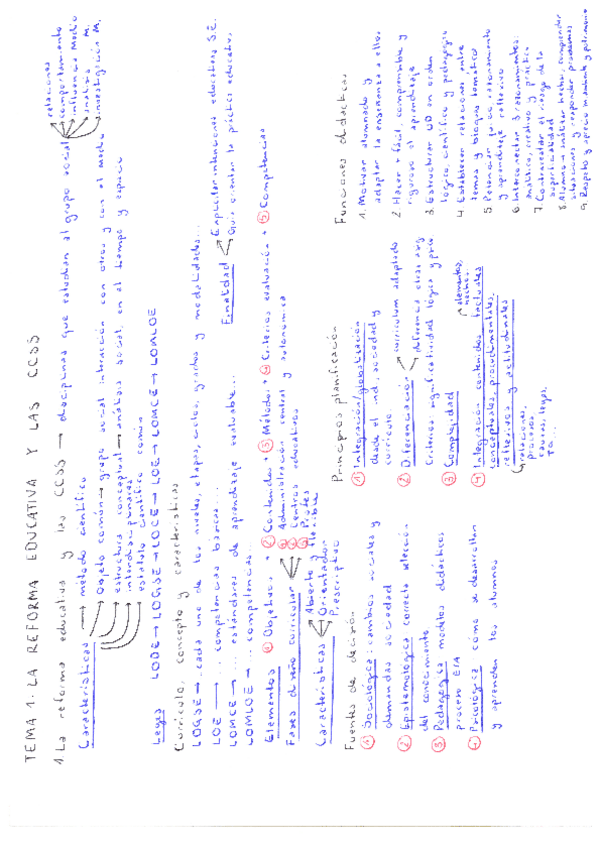 TEMA 1. LA REFORMA EDUCATIVA Y LAS CCSS
1. La reforma educativa y las CCSS → disciplinas que estudian al grupo social
relaciones
comportamiento
influencia Medio
análisis M.
investigación M.
Características → método científico
objeto común → grupo social interacción con otros y con el medio
estructura conceptual → análisis social, en el tiempo y espacio
interdisciplinares
estatuto científico común
Leyes
LODE → LOGSE → LOCE → LOE → LOMCE → LOMLOE
Currículo, concepto y características
LOGSE → cada uno de los niveles, etapas, ciclos, grados y modalidades...
LOE → ... competencias básicas...
LOMCE → ... estándares de aprendizaje evaluable...
LOMLOE → ... competencias...
Finalidad
Explicitar intenciones educativas S.E.
Guía orientar la práctica educativa
Elementos ① Objetivos + ② Contenidos + ③ Métodos + ④ Criterios evaluación + ⑤ Competencias
Fases diseño curricular
Administración central y autonómica
Centros educativos
Características
Abierto y flexible
Orientador
Prescriptivo
Fuentes de decisión
① Sociológica: cambios sociales y
demandas sociedad
② Epistemológica correcta selección
del conocimiento
③ Pedagógica modelos didácticos
proceso E/A
④ Psicológica como se desarrollan
y aprenden los alumnos
Principios planificación
① Integración/globalización
desde el ind., sociedad y
currículo
② Diferenciación
curriculum adaptado
diferencia otras
Criterios significatividad lógica y psic
③ Complejidad
elementos,
hechos.
④ Integración contenidos factuales
conceptuales, procedimentales,
reflexivos y actitudinales
relaciones,
procesos
causas, leyes,
Funciones didácticas
1. Motivar alumnado y
adaptar la enseñanza a ellos
2. Hacer + fácil, comprensible y
riguroso el aprendizaje
3. Estructurar UD en orden
lógico, científico y pedagógico
4. Establecer relaciones entre
temas y bloques temático
5. Potenciar juicio, razonamiento
y aprendizaje reflexivo
6. Interconectar 3 razonamientos:
analítico, creativo y práctico
7. Contrarrestar el riesgo de la
superficialidad
8. Alumno → analizar hechos, comprender
situaciones y responder problemas
9. Respeto y aprecio m.ambiente y patrimonio